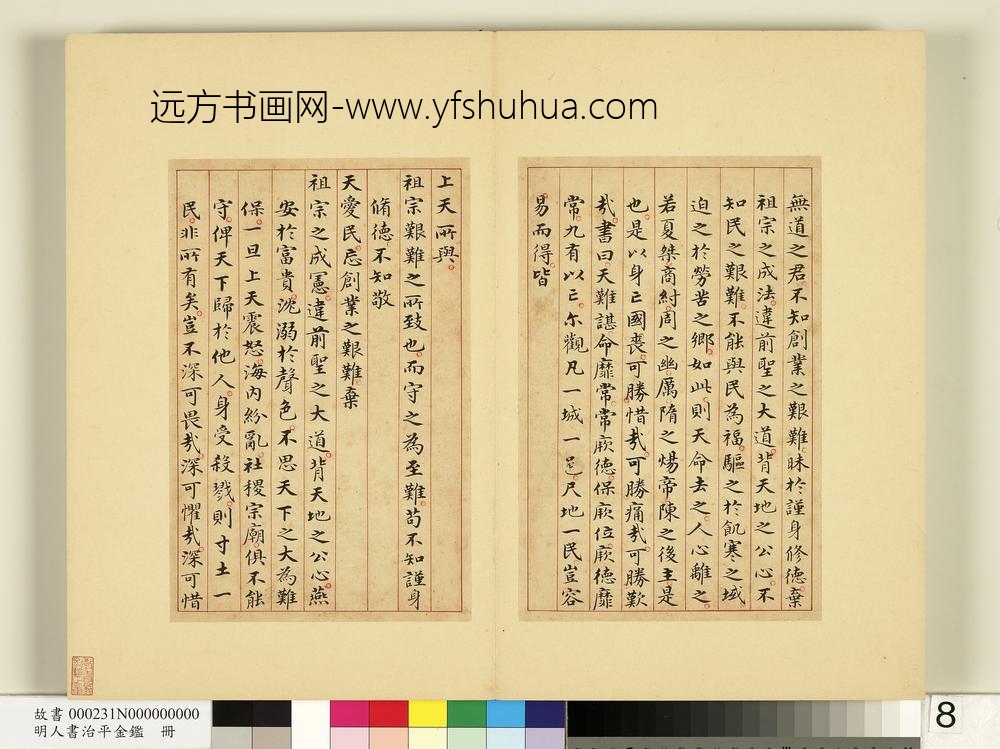 远方书画网-www.yfshuhua.com
無道之君不知創業之艱難昧於謹身修德棄
祖宗之成法違前聖之大道背天地之公心不
知民之艱難不能與民為福驅之於飢寒之域
迫之於勞苦之鄉如此則天命去之人心離之
若夏桀商紂周之幽厲隋之煬帝陳之後主是
也是以身亡國喪可勝惜哉可勝痛哉可勝歎
哉書曰天難諶命靡常常厥德保厥位厥德靡
常九有以亡尔觀凡一城一邑尺地一民豈容
易而得皆
上天所與
祖宗艱難之所致也而守之為至難苟不知謹身
脩德不知敬
天愛民忘創業之艱難棄
祖宗之成憲違前聖之大道背天地之公心燕
安於富貴沈溺於聲色不思天下之大為難
保一旦上天震怒海內紛亂社稷宗廟俱不能
守俾天下歸於他人身受殺戮則寸土一
民非所有矣豈不深可畏哉深可懼哉深可惜
故書 000231N000000000
明人書治平金鑑 冊
8